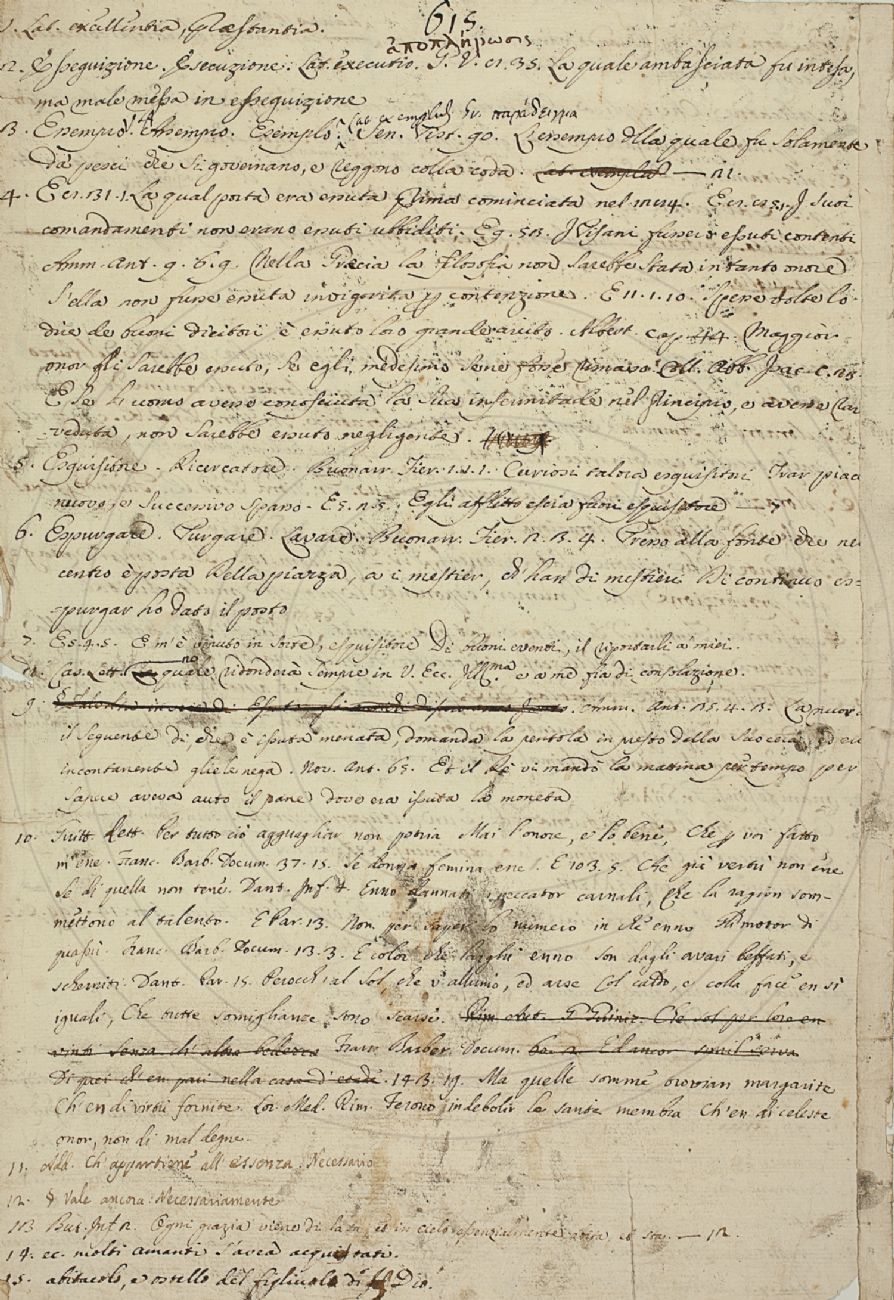 615.
1. Lat. excellentia, præstantia.
ἀποπλήρωσις
2. Esseguizione. Esecuzione. Lat. executio. G. V. cr. 35. La quale ambasciata fu intesa,
ma male messa in esseguizione
Lat. exemplum gr. παράδειγμα
3. Esempio. Exemplo. Sen. Pist. 90. L'esempio della quale fu solamente
da pesci che si governano, e reggono colla coda.
4. E cr. 131. 1. La qual porta era essuta prima cominciata nel E cr. I suoi
comandamenti non erano essuti ubbiditi. Eg. I Pisani essuti contenti
Amm. Ant. 9. 6. 9. Nella Grecia la filosofia non sarebbe stata in tanto onore
S'ella non fusse essuta invigorita p contenzione. E 11. 1. 10. Spesse volte lo
dire de buoni dicitori è essuto loro grande Albert. cap. Maggior
onor gli sarebbe essuto, se egli medesimo sene fosse rimaso. Coll. Abb. Isac. C.
E se l'uomo avesse conosciuta la sua infermitade nel principio, e avesse
veduta, non sarebbe essuto negligente.
5. Esquisitore. Ricercatore. Buonarr. Fier. Curiosi talora esquisitori Trar
nuovo successivo E 5. Egli esquisitore
6. Espurgare. Purgare. Lavare. Buonarr. Fier. 4. Presso alla fonte che nel
centro è posta della piazza, a i mestier, ch'han di mestieri Di continuo es=
purgar ho dato il posto
7. E 5. 4. 5. E m'è venuto in sorte, esquisitore Di buoni eventi, il riportarli a' miei.
Cas. lett. quale ridonderà sempre in V. Ecc. Illma e a me fia di consolazione.
9. Amm. Ant. La nuora
il seguente di, che è issuta menata, domanda la pentola in presto dalla suocera, ed ella
incontanente gliele nega. Nov. Ant. 65. Et il Re vi mandò la mattina per tempo per
sapere aveva auto il pane dove era issuta la moneta
10. Guitt. Lett. Per tutto ciò agguagliar non potria Mai l'onore, e lo bene, Che p voi fatto
m'ène. Franc. Barb. Docum. 37. 15. Se donna femina ene. E 103. 5. Chè già vertù non ène
Se di quella non tene. Dant. Inf. Enno dannati i peccator carnali, Che la ragion som-
mettono al talento. E Par. 13. Non per saper lo numero in che enno Li motor di
quassù. Franc. Barb. Docum. 13. 3. E color che larghi enno son dagli avari beffati, e
scherniti. Dant. Par. 15. Perocch'al Sol, che v'allumò, ed arse Col caldo, e colla face en sì
iguali, Che tutte somiglianze sono scarse. Rim. Ant. G. Guiniz. Che sol per loro en
vinti senza ch'altra bellezza Franc. Barber. Docum.
143. 19. Ma quelle somme trovian margarite
Ch'en di virtù fornite. Lor. Med. Rim. Feron indebolir le sante membra Ch'en di celeste
onor, non di mal degne.
11. Add. Ch'appartiene all'essenza. Necessario
12. § Vale ancora Necessariamente
113 But. Inf. 2. Ogni grazia viene di lassù, ed in cielo essenzialmente
14. ec. molti amanti s'avea acquistati.
15. abitacolo, e ostello del figliuolo di Dio.